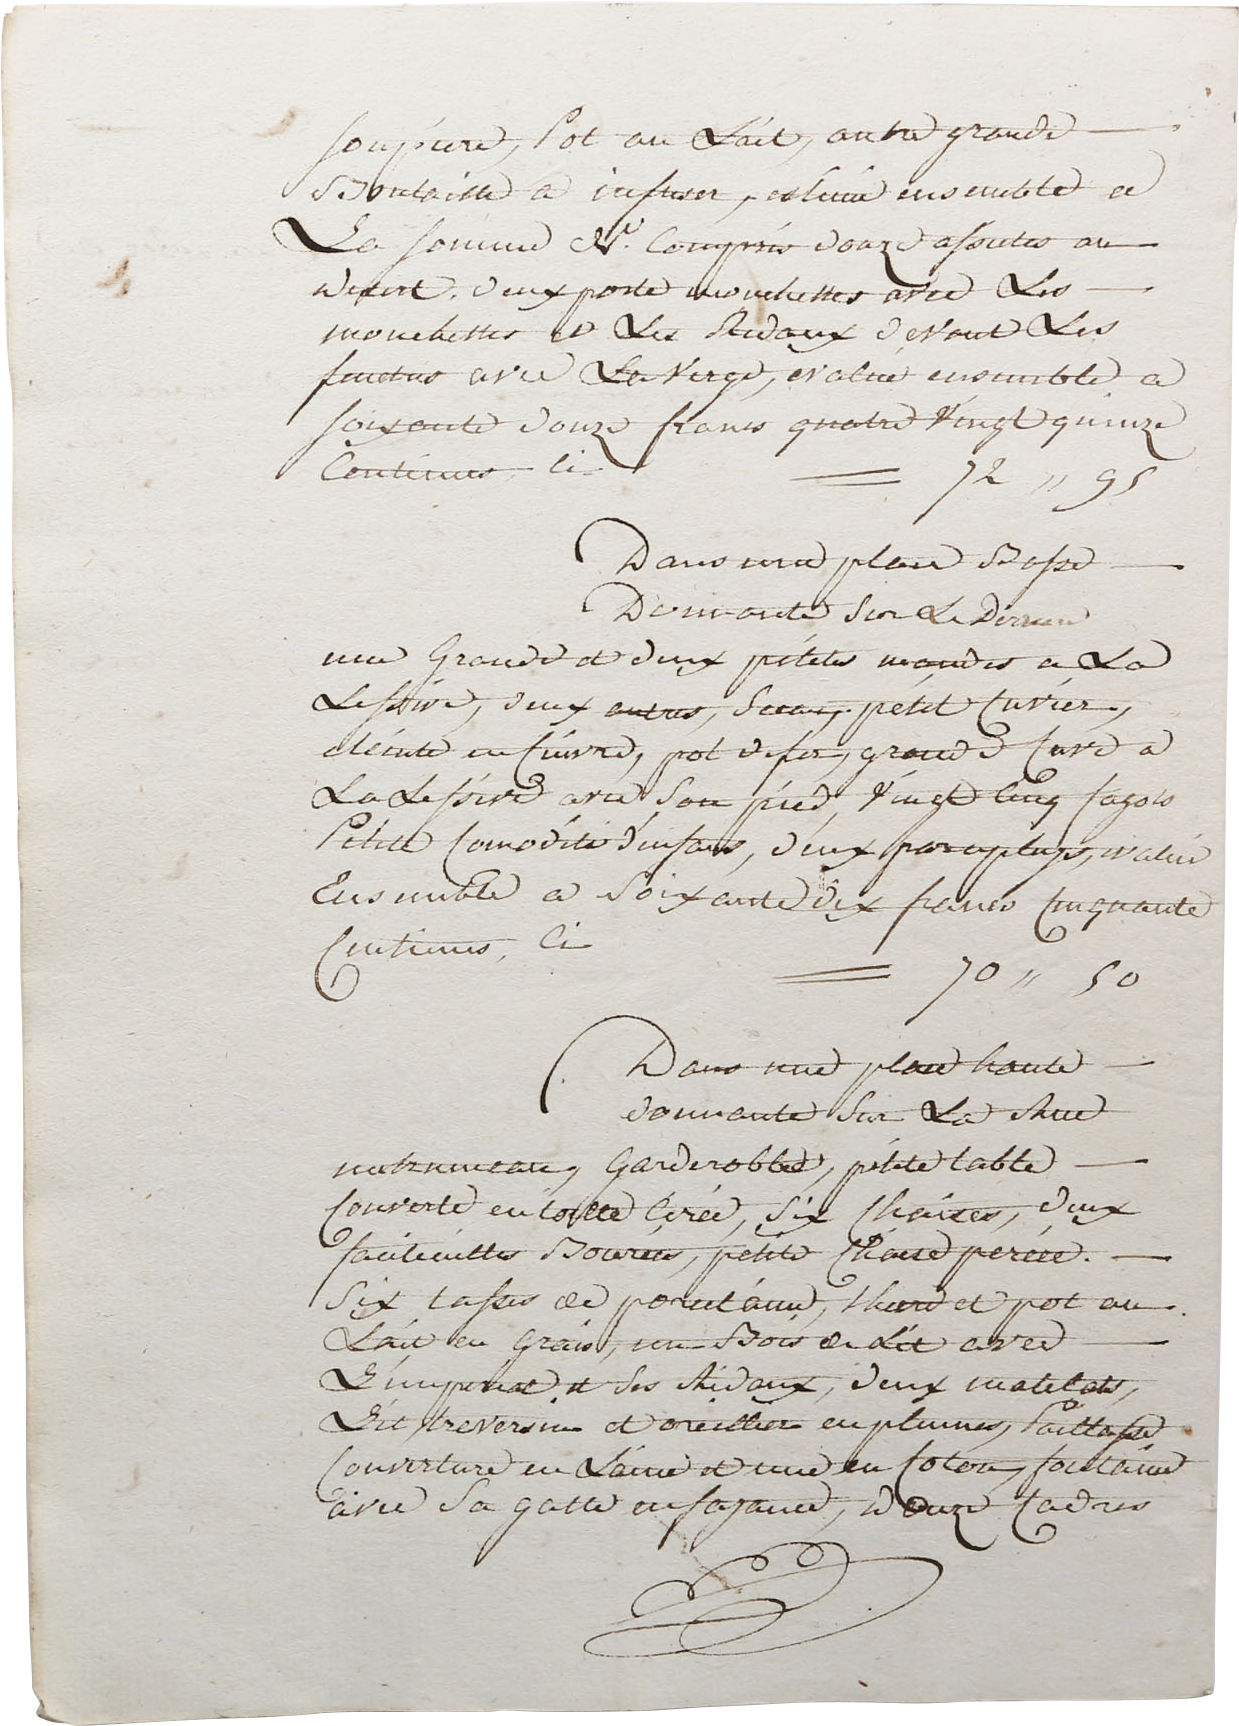 soupiere, Pot au Lait, autre grande
Boutaille a infuser, estimé ensemble a
La somme Compris douze assietes au
desert, deux porte mouchettes avec Les
mouchettes et Les Ridaux devant Les
fenetres avec La Verge, evalué ensemble a
soixante douze francs quatre Vingt quinze
Centimes, Ci = 72 " 95
Dans une place Basse
Donnante Sur Le Derriere
une Grande et deux petites mandes a La
Lessive, deux autres, Seau, petit Cuvier,
en Cuivre, pot de fer, grande Cuve a
La Lessive avec Son pied, Vingt Cinq fagots
Petite Comodité d'enfans, deux parapluys, evalué
Ensemble a Soixante dix francs Cinquante
Centimes, Ci
= 70 " 50
Dans une place haute
donnante Sur La Rue
un trumeau, Garderobbe, petite table
Couverte en toille Cirée, Six Chaises, deux
fauteuilles Bourés, petite Chaise percée.
Six tasses de porcelaine, theire et pot au
Lait en Grais, un Bois de Lit avec
L'imperial et Ses Ridaux, deux matelats,
Lit, traversin et oreiller en plumes, Paillasse
Couverture en Laine et une en Coton, fontaine
avec Sa gatte en fajance, douze Cadres